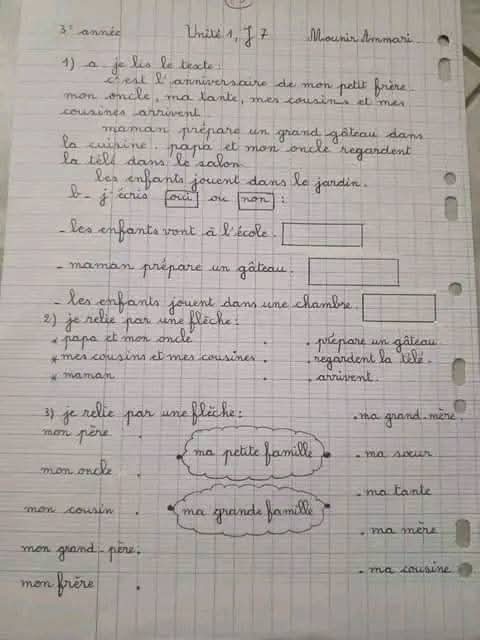 3e année Unité 1, J 7 Mounir Ammari
1) a - je lis le texte:
c'est l'anniversaire de mon petit frère.
mon oncle, ma tante, mes cousins et mes
cousines arrivent.
maman prépare un grand gâteau dans
la cuisine. papa et mon oncle regardent
la télé dans le salon
les enfants jouent dans le jardin.
b - j'écris oui ou non :
- les enfants vont à l'école.
- maman prépare un gâteau.
- les enfants jouent dans une chambre.
2) je relie par une flèche:
* papa et mon oncle . . prépare un gâteau
* mes cousins et mes cousines . . regardent la télé.
* maman . . arrivent.
3) je relie par une flèche: . ma grand-mère.
mon père .
ma petite famille . ma sœur
mon oncle .
. ma tante
mon cousin . ma grande famille
. ma mère
mon grand-père.
. ma cousine
mon frère .